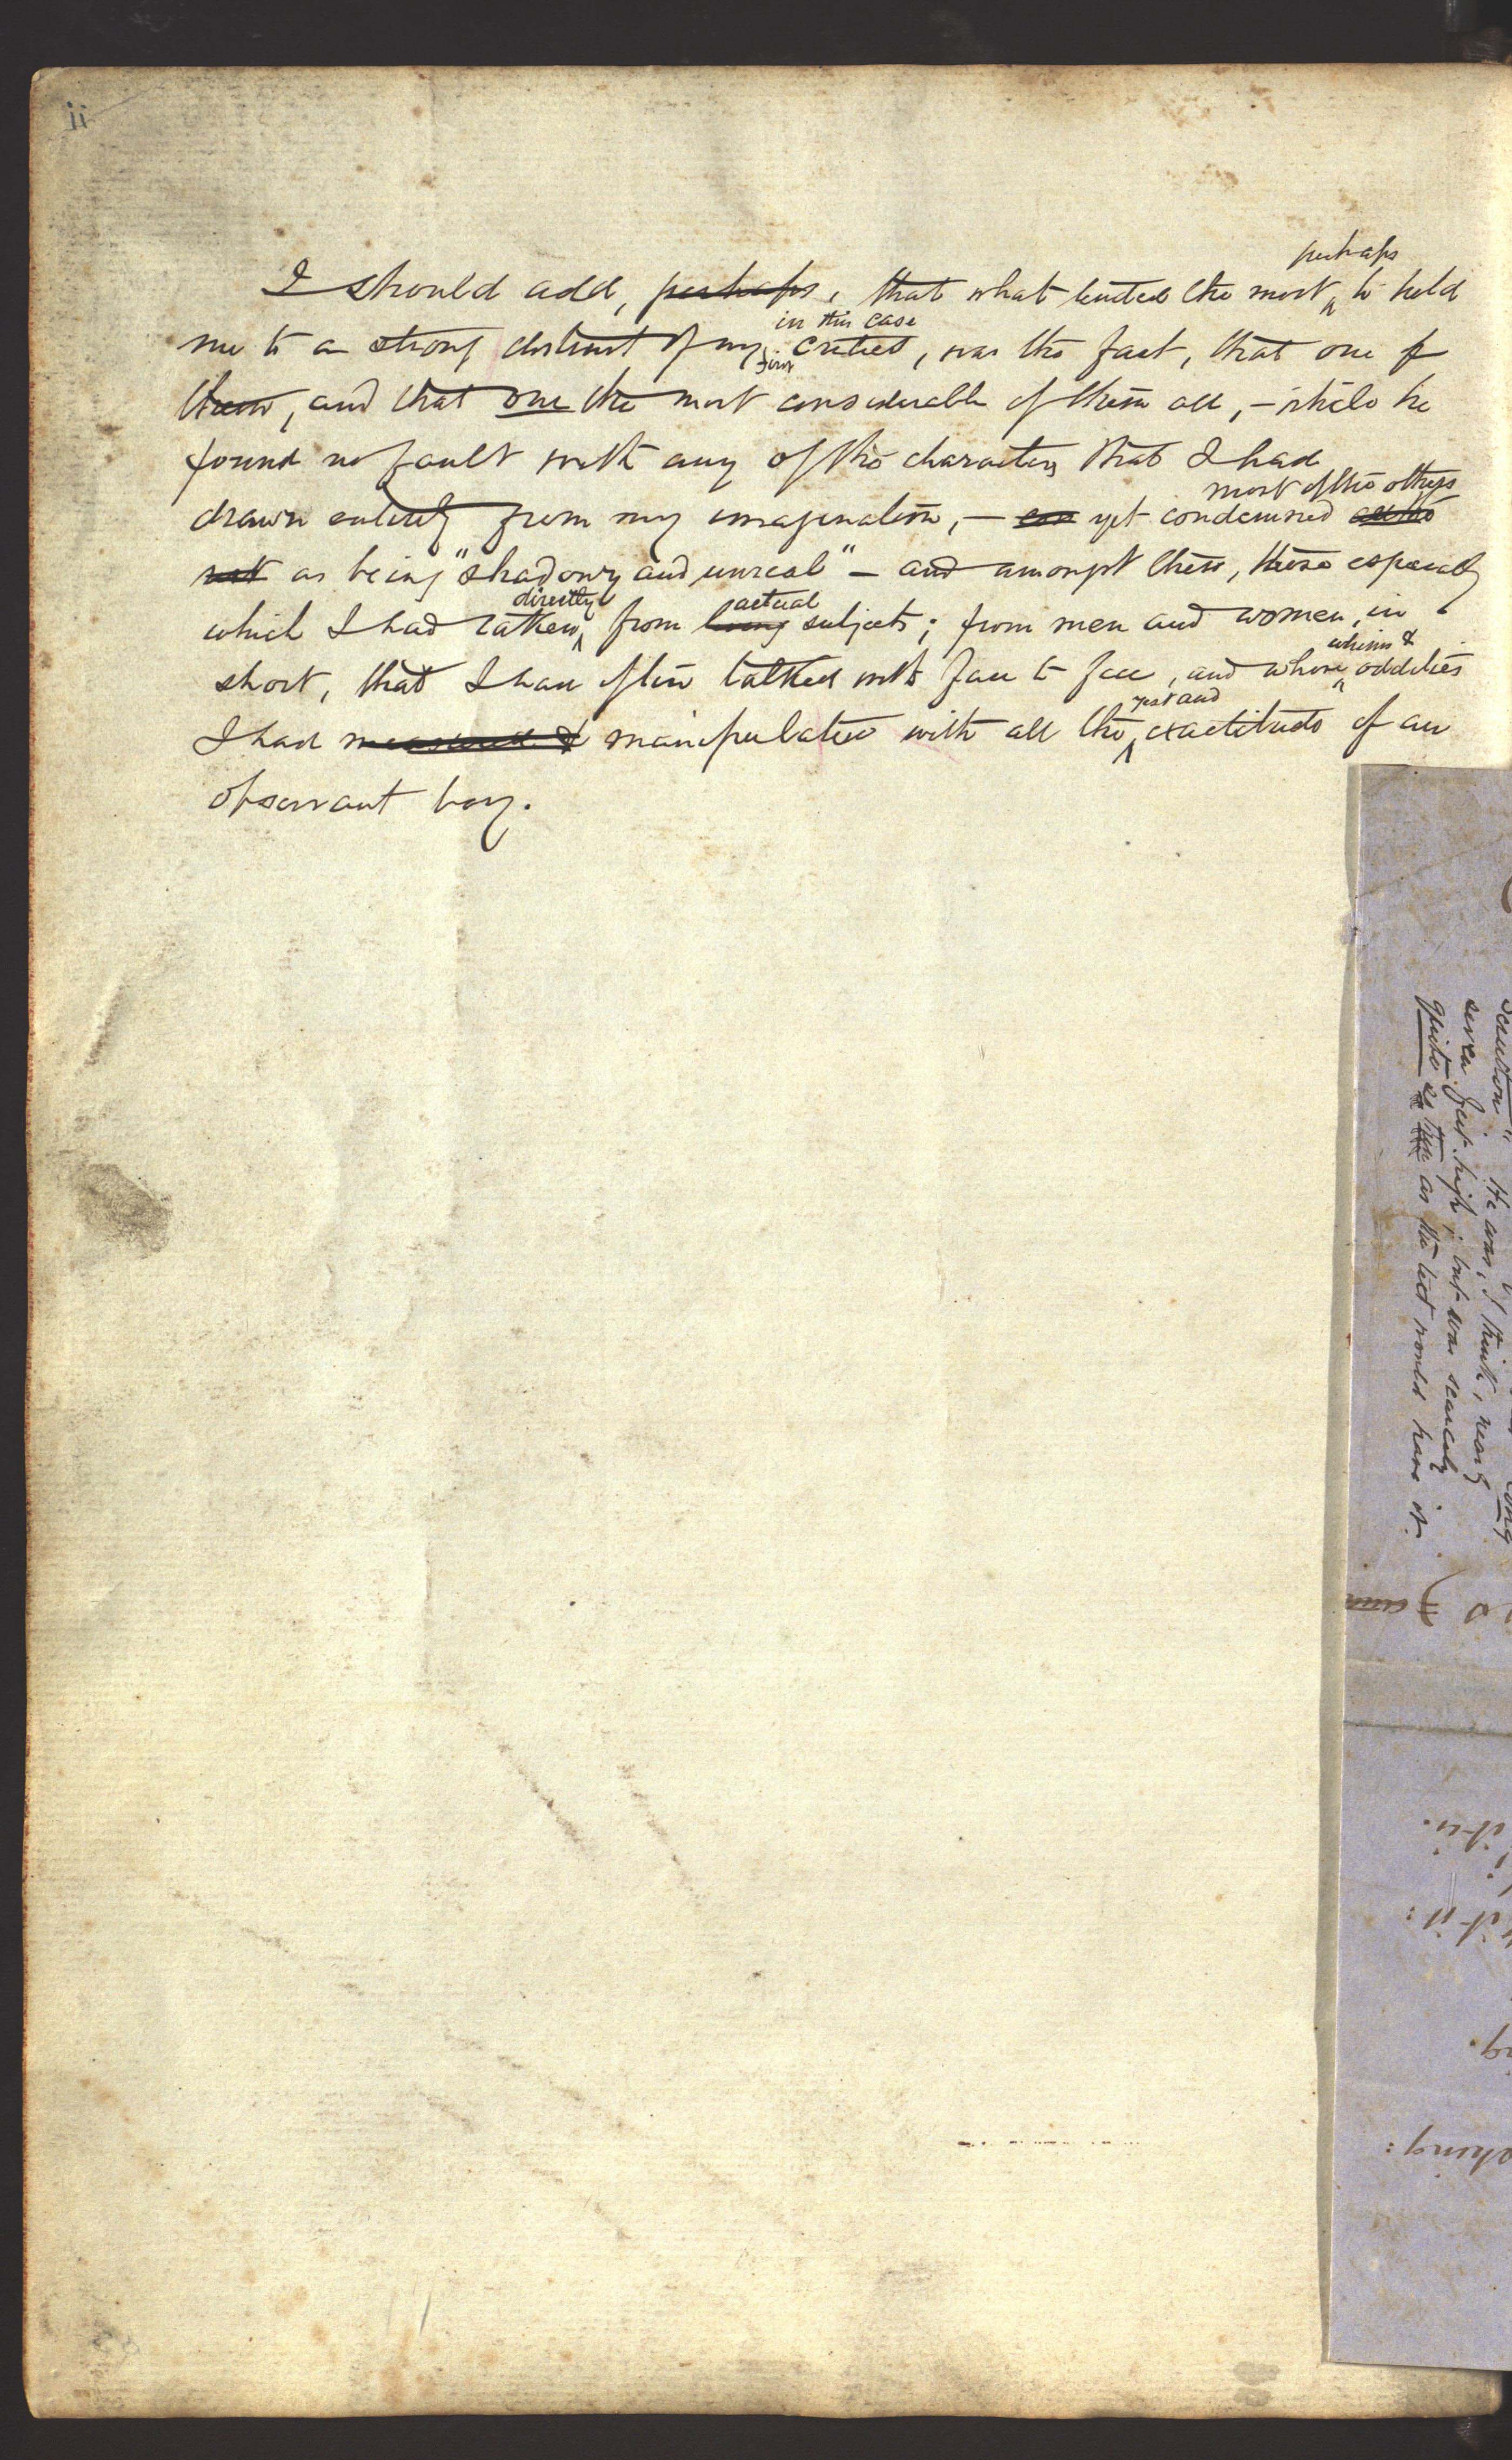 ii
perhaps
I should add, perhaps, that what tended the most to hold
in this case
me to a strong distrust of my first critics, was the fact, that one of
them, and that one the most considerable of them all, – while he
found no fault with any of the characters that I had
most of the others
drawn entirely from my imagination, – yet condemned all the
rest as being "shadowy and unreal" – and amongst these, those especially
directly actual
which I had taken from living subjects; from men and women, in
whims &
short, that I had often talked with face to face, and whose oddities
zest and
I had measured & manipulated with all the exactitude of an
observant boy.
He was, I think, nearly
seven feet high; but was scarcely
quite as as the lied would have it.
it is.
it is: